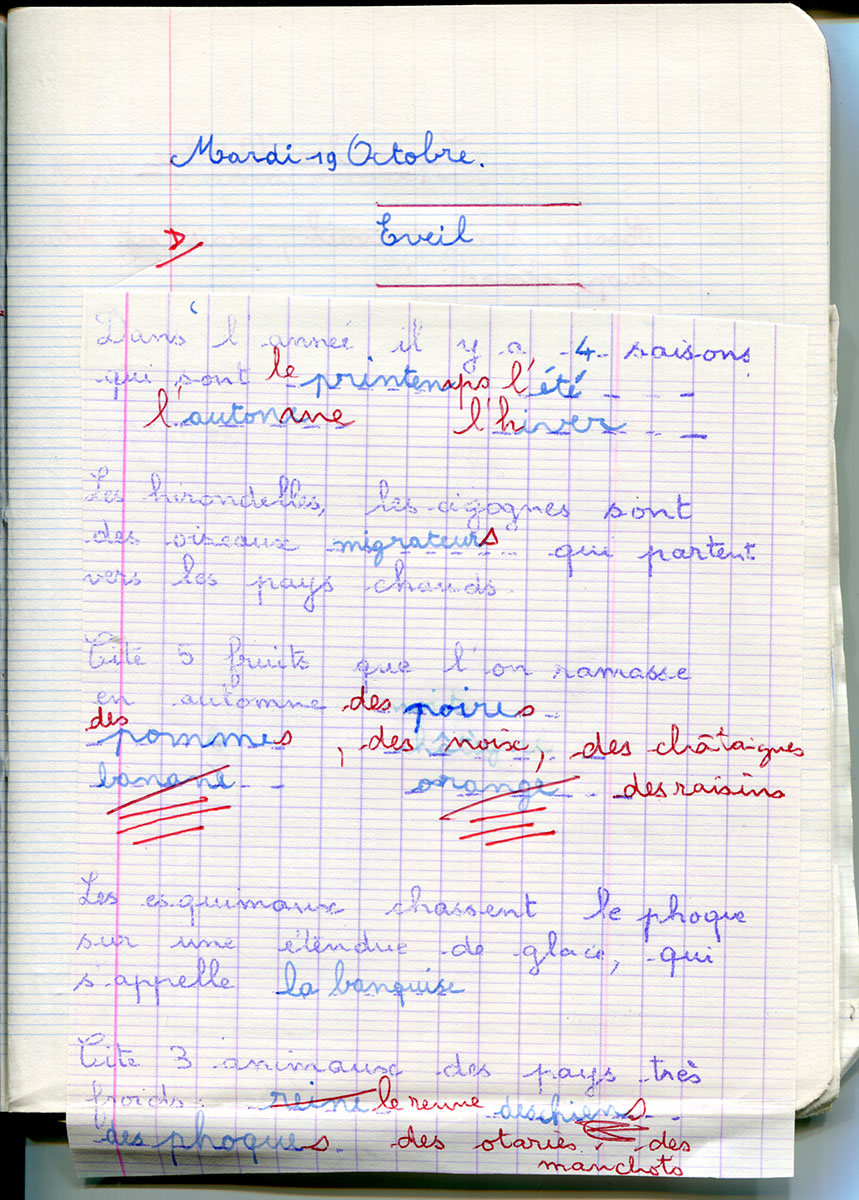 Mardi 19 Octobre.
Eveil
Dans l'année il y a 4 saisons
qui sont le printemps l'été
l'automne l'hiver
Les hirondelles, les cigognes sont
des oiseaux migrateurs qui partent
vers les pays chauds
Cite 5 fruits que l'on ramasse
en automne des poires
des pommes, des noix, des châtaignes
banane orange des raisins
Les esquimaux chassent le phoque
sur une étendue de glace, qui
s'appelle la banquise
Cite 3 animaux des pays très
froids reine le renne des chiens
des phoques des otaries, des
manchots